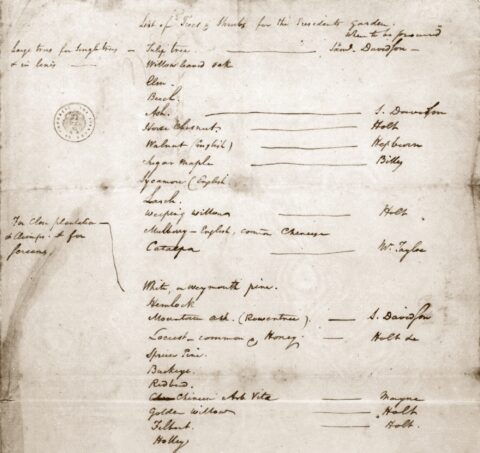 List of Trees & Shrubs for the Presidents Garden.
Where to be procured
Large trees for single trees — Tulip tree — Saml. Davidson —
& in lines — Willow leaved oak
Elm.
Beech.
Ash. — S. Davidson
Horse Chesnut — Holt
Walnut (English) — Hepburn
Sugar Maple — Billy
Sycamore (English
Larch.
Weeping Willow — Holt.
For Close plantation
& Clumps. & for
screens,
Mulberry — English, common Chineese
Catalpa — Wm. Tayloe
White, or weymouth pine.
Hemlock
Mountain ash. (Rowentree). — S. Davidson
Locust — common & Honey. — Holt &c
Spruce Pine.
Buckeye.
Redbud.
Chineese Arb Vita — Mayne
Golden Willow — Holt
Filbert — Holt.
Holley